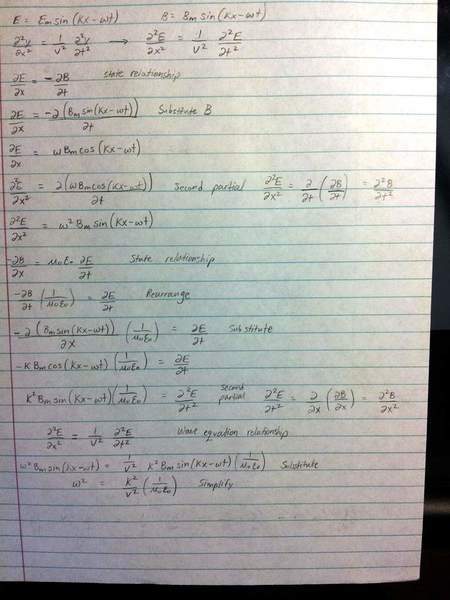 E = Em sin(Kx-wt)    B = Bm sin(Kx-wt)
∂²y/∂x² = 1/v² ∂²y/∂t² → ∂²E/∂x² = 1/v² ∂²E/∂t²
∂E/∂x = -∂B/∂t    state relationship
∂E/∂x = -∂(Bm sin(Kx-wt))/∂t    Substitute B
∂E/∂x = wBm cos(Kx-wt)
∂²E/∂x² = ∂(wBm cos(Kx-wt))/∂t    Second partial    ∂²E/∂x² = ∂/∂t (∂B/∂t) = ∂²B/∂t²
∂²E/∂x² = w²Bm sin(Kx-wt)
-∂B/∂x = μ₀ε₀ ∂E/∂t    State relationship
-∂B/∂t (1/μ₀ε₀) = ∂E/∂t    Rearrange
-∂(Bm sin(Kx-wt))/∂x (1/μ₀ε₀) = ∂E/∂t    Substitute
-KBm cos(Kx-wt)(1/μ₀ε₀) = ∂E/∂t
K²Bm sin(Kx-wt)(1/μ₀ε₀) = ∂²E/∂t²    second partial    ∂²E/∂t² = ∂/∂x (∂B/∂x) = ∂²B/∂x²
∂²E/∂x² = 1/v² ∂²E/∂t²    Wave equation relationship
w²Bm sin(Kx-wt) = 1/v² K²Bm sin(Kx-wt)(1/μ₀ε₀)    Substitute
w² = K²/v² (1/μ₀ε₀)    Simplify